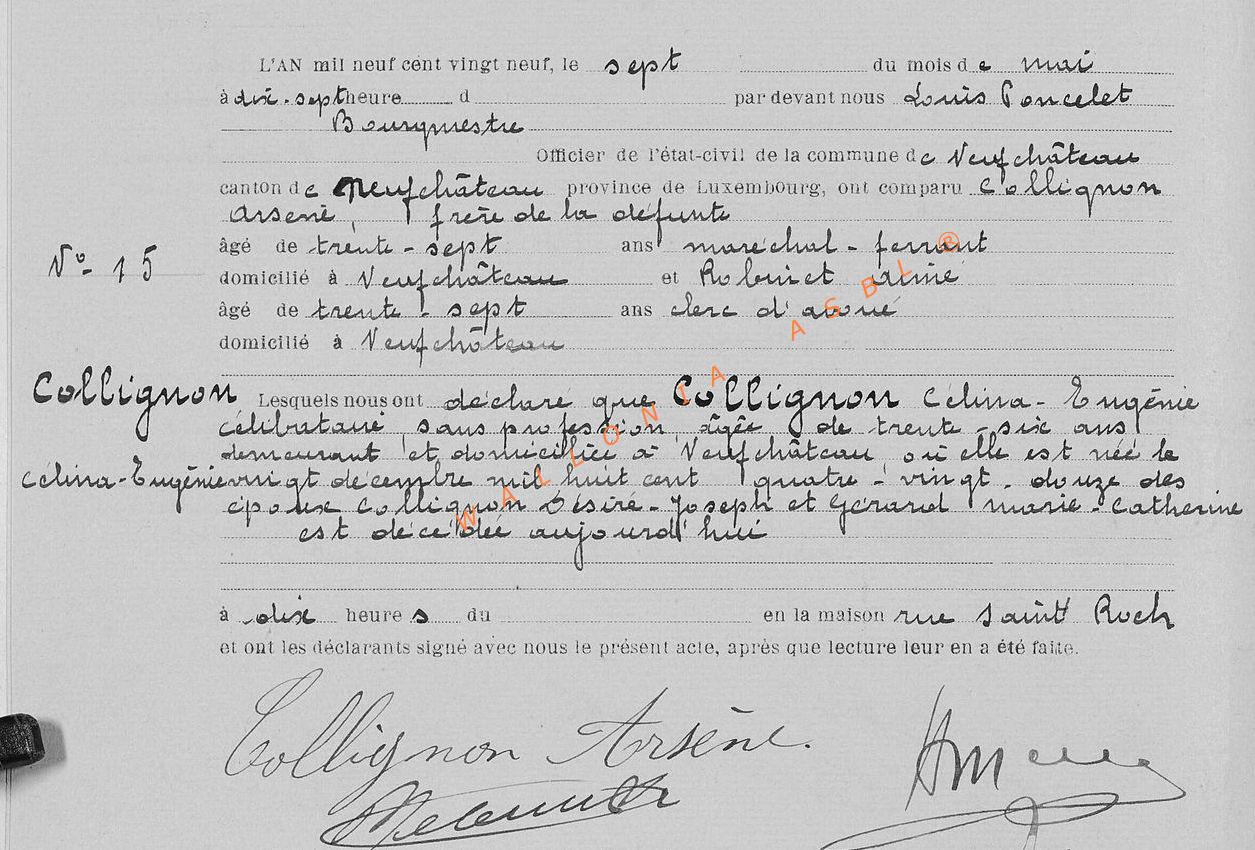 L'AN mil neuf cent vingt neuf, le sept du mois de mai
à dix-sept heure d par devant nous Louis Poncelet
Bourgmestre
Officier de l'état-civil de la commune de Neufchâteau
canton de Neufchâteau province de Luxembourg, ont comparu Collignon
Arsène, frère de la défunte
âgé de trente-sept ans maréchal-ferrant
domicilié à Neufchâteau et Robinet Aimé
N° 15
âgé de trente-sept ans clerc d'avoué
domicilié à Neufchâteau
Collignon Lesquels nous ont déclaré que Collignon Célina-Eugénie
célibataire, sans profession, âgée de trente-six ans
demeurant et domiciliée à Neufchâteau, où elle est née le
Célina-Eugénie vingt décembre mil huit cent quatre-vingt-douze des
époux Collignon Désiré-Joseph et Gérard Marie-Catherine
est décédée aujourd'hui
à dix heures du en la maison rue Saint Roch
et ont les déclarants signé avec nous le présent acte, après que lecture leur en a été faite.
Collignon Arsène.
WALLONIA ASBL ®